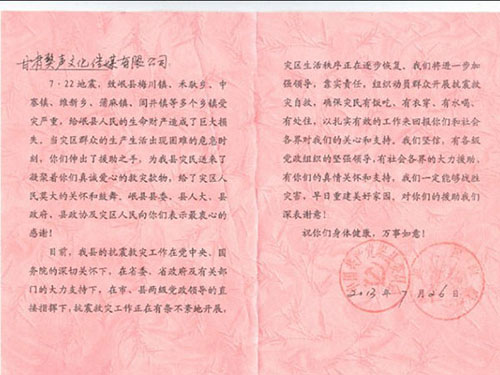 甘肃樊声文化传媒有限公司
7·22地震,致岷县梅川镇、禾驮乡、中
寨镇、维新乡、蒲麻镇、闾井镇等多个乡镇受
灾严重,给岷县人民的生命财产造成了巨大损
失。当灾区群众的生产生活出现困难的危急时
刻,你们伸出了援助之手,为我县灾民送来了
凝聚着你们真诚爱心的救灾款物,给了灾区人
民莫大的关怀和鼓舞。岷县县委、县人大、县
政府、县政协及灾区人民向你们表示最衷心的
感谢!
目前,我县的抗震救灾工作在党中央、国
务院的深切关怀下,在省委、省政府及有关部
门的大力支持下,在市、县两级党政领导的直
接指挥下,抗震救灾工作正在有条不紊地开展,
灾区生活秩序正在逐步恢复。我们将进一步加
强领导,靠实责任,组织动员群众开展抗震救
灾自救,确保灾民有饭吃,有衣穿、有水喝、
有处住,以扎实有效的工作来回报你们和社会
各界对我们的关心和支持。我们坚信,有各级
党政组织的坚强领导,有社会各界的大力援助,
有你们的真情关怀和支持,我们一定能够战胜
灾害,早日重建美好家园。对你们的援助我们
深表谢意!
祝你们身体健康,万事如意!
2013年7月26日